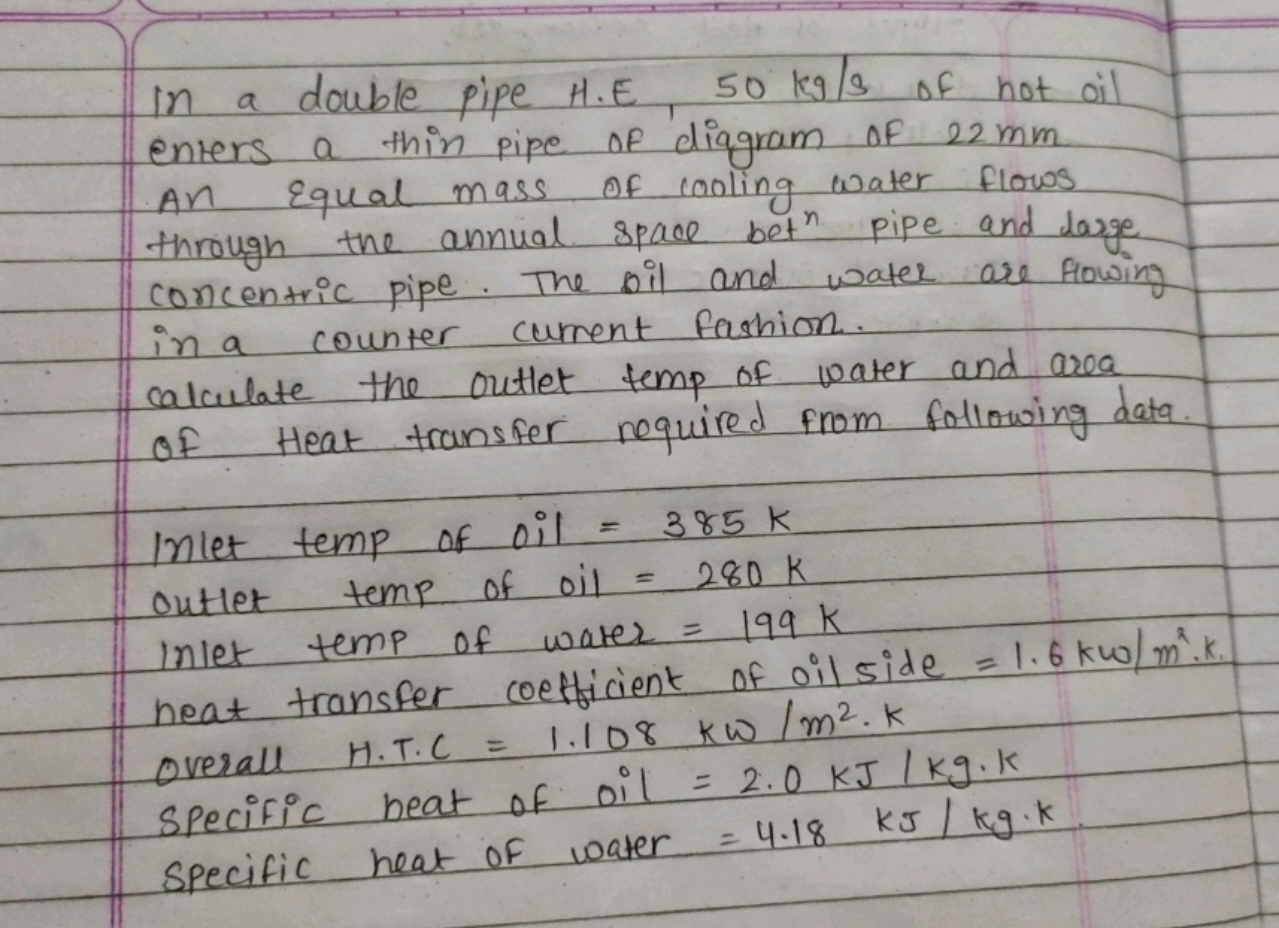 In a double pipe H.E, 50 kg/s of hot oil
enters a thin pipe of diagram of 22 mm
An Equal mass of cooling water flows
through the annual space betn pipe and large
concentric pipe. The oil and water are flowing
in a counter current fashion.
calculate the outlet temp of water and area
of Heat transfer required from following data.
Inlet temp of oil = 385 K
outlet temp of oil = 280 K
Inlet temp of water = 199 K
heat transfer coefficient of oil side = 1.6 kw/m².K.
overall H.T.C = 1.108 kw/m².K
specific heat of oil = 2.0 KJ/kg.K
specific heat of water = 4.18 KJ/kg.K